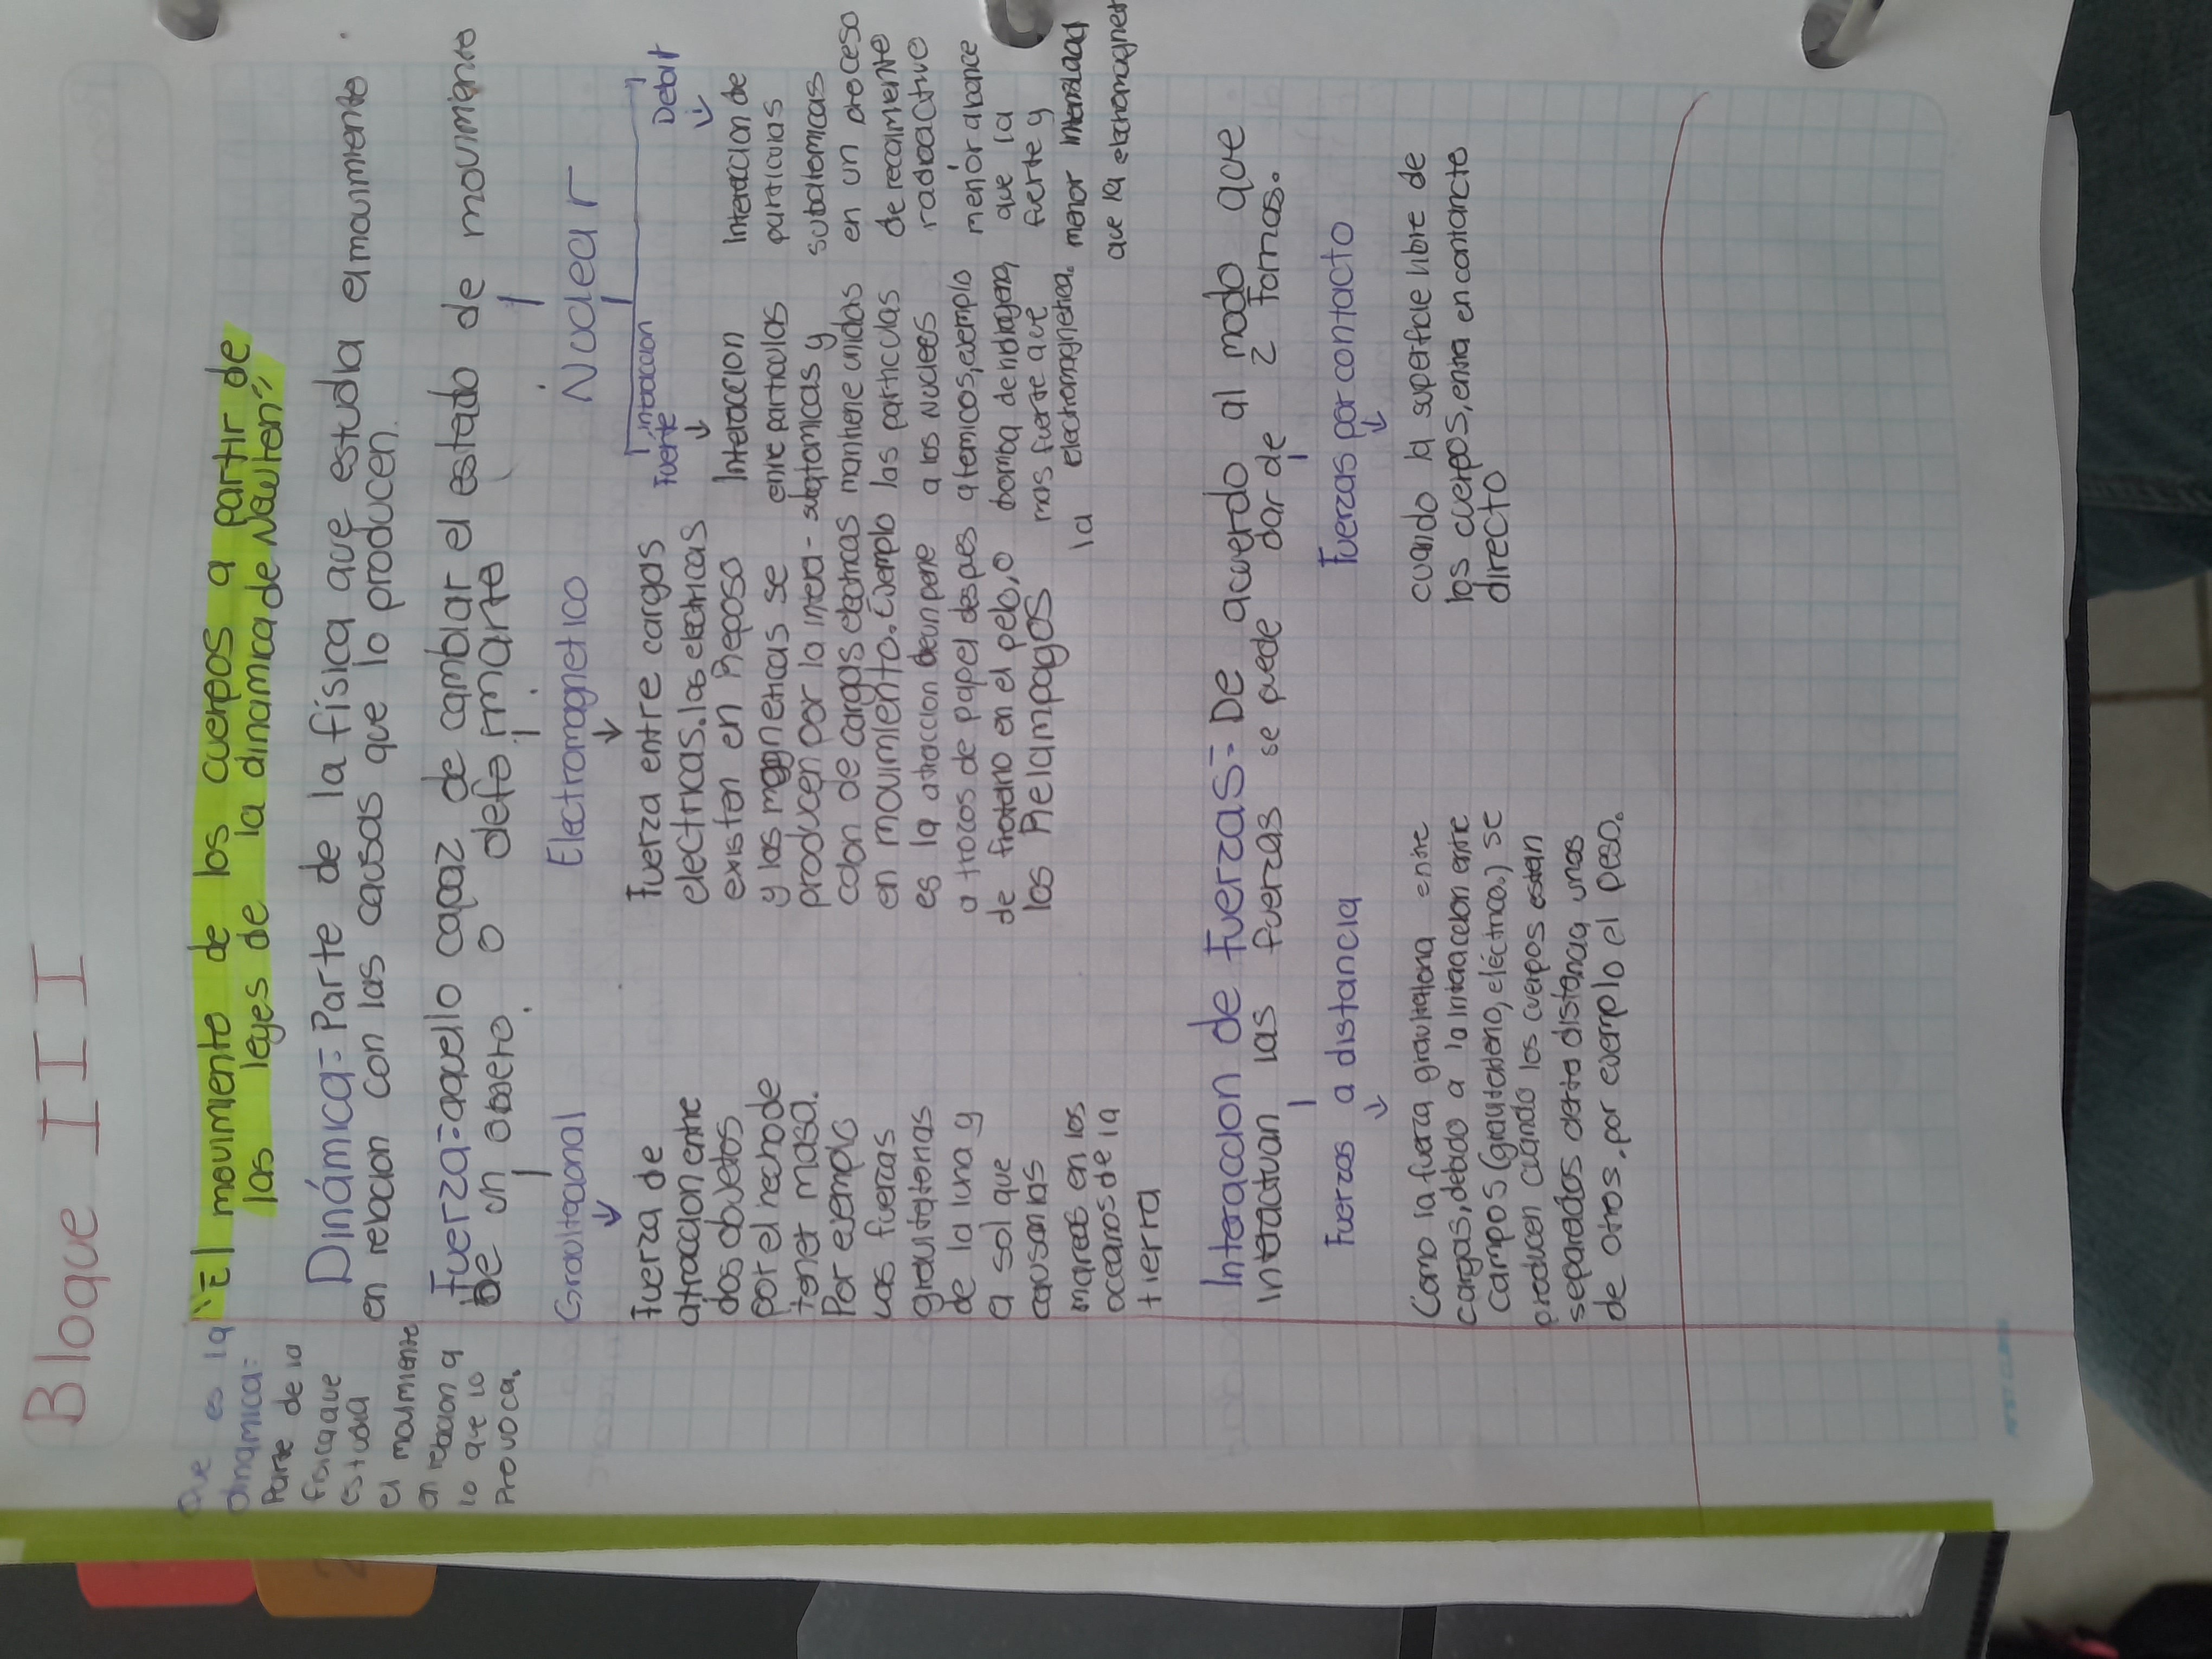 Bloque III
"El movimiento de los cuerpos a partir de
las leyes de la dinamica de Newton"
Que es la
dinamica=
Parte de la
fisica que
estudia
el movimiento
en relacion a
lo que lo
Provoca.
Dinámica= Parte de la física que estudia el movimiento
en relacion con las causas que lo producen.
Fuerza= aquello capaz de cambiar el estado de movimiento
de un objeto. o deformarlo
Gravitacional
Fuerza de
atraccion entre
dos objetos
por el hecho de
tener masa.
Por ejemplo
las fuerzas
gravitatorias
de la luna y
el sol que
causan las
mareas en los
oceanos de la
tierra
Electromagnetico
Fuerza entre cargas
electricas. las electricas
existen en Reposo
y las magneticas se
producen por la intera-
cción de cargas electricas
en movimiento. Ejemplo
es la atraccion de un peine
a trozos de papel despues
de frotarlo en el pelo, o
los Relampagos
Nuclear
interaccion
Fuerte
Interaccion
entre particulas
subatomicas y
mantiene unidas
las particulas
a los nucleos
atomicos, ejemplo
bomba de hidrogeno
mas fuerte que
la electromagnetica.
Debil
Interaccion de
particulas
subatomicas
en un proceso
de recaimiento
radioactivo
menor alcance
que la
fuerte y
menor intensidad
que la electromagnet
Interaccion de Fuerzas= De acuerdo al modo que
interactuan las fuerzas se puede dar de 2 formas.
Fuerzas a distancia
Como la fuerza gravitatoria entre
cargas, debido a la interaccion entre
campos (gravitatorio, eléctrico.) se
producen cuando los cuerpos estan
separados cierta distancia unos
de otros, por ejemplo el peso.
Fuerzas por contacto
cuando la superficie libre de
los cuerpos, entra en contancto
directo